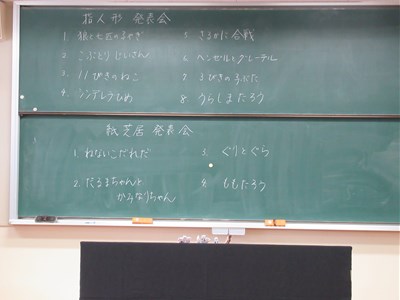 指人形 発表会
1. 狼と七匹の子やぎ
2. こぶとりじいさん
3. 11ぴきのねこ
4. シンデレラひめ
5. さるかに合戦
6. ヘンゼルとグレーテル
7. 3びきの子ぶた
8. うらしまたろう
紙芝居 発表会
1. ねないこだれだ
2. だるまちゃんと
かみなりちゃん
3. ぐりとぐら
4. ももたろう